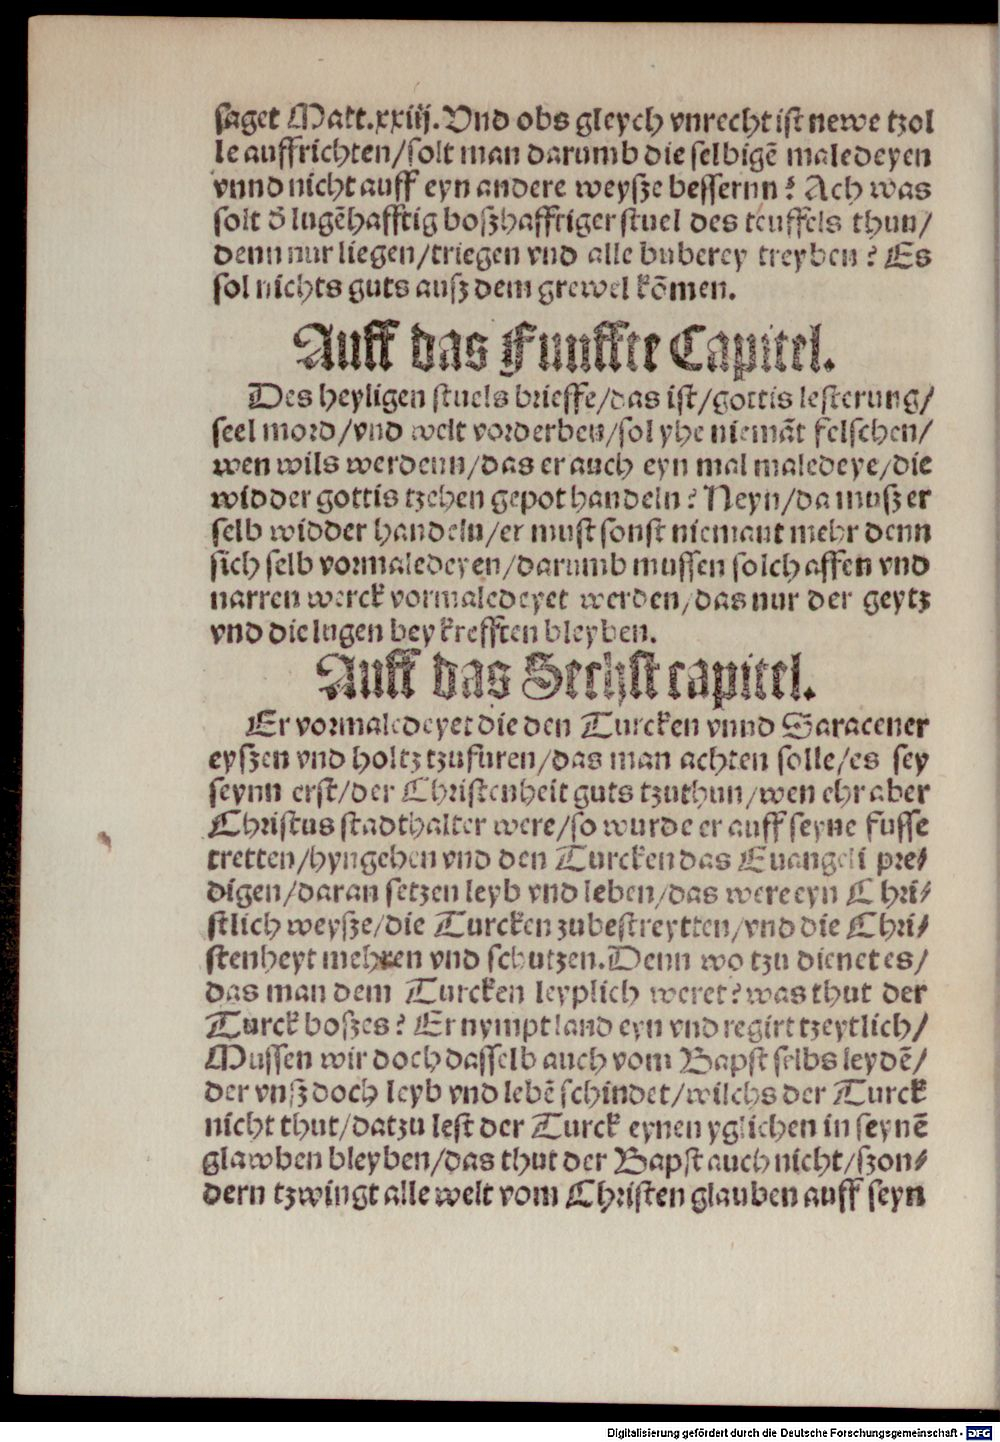 saget Matt.xxiij. Vnd obs gleych vnrecht ist newe tzol
le auffrichten/solt man darumb die selbigẽ maledeyen
vnnd nicht auff eyn andere weysze bessernn? Ach was
solt õ lugẽhafftig boszhafftiger stuel des teuffels thun/
denn nur liegen/triegen vnd alle buberey treyben? Es
sol nichts guts ausz dem grewel kõmen.
Auff das Funffte Capitel.
Des heyligen stuels brieffe/das ist/gottis lesterung/
seel mord/vnd welt vorderben/sol yhe niemãt felschen/
wen wils werdenn/das er auch eyn mal maledeye/die
widder gottis tzehen gepot handeln? Neyn/da musz er
selb widder handeln/er must sonst niemant mehr denn
sich selb vormaledeyen/darumb mussen solch affen vnd
narren werck vormaledeyet werden/das nur der geytz
vnd die lugen bey krefften bleyben.
Auff das Sechst capitel.
Er vormaledeyet die den Turcken vnnd Saracener
eyszen vnd holtz tzufuren/das man achten solle/es sey
seynn erst/der Christenheit guts tzuthun/wen ehr aber
Christus stadthalter were/so wurde er auff seyne fusse
tretten/hyngehen vnd den Turcken das Euangeli pre⸗
digen/daran setzen leyb vnd leben/das were eyn Chri⸗
stlich weysze/die Turcken zubestreytten/vnd die Chri⸗
stenheyt mehren vnd schutzen. Denn wo tzu dienet es/
das man dem Turcken leyplich weret? was thut der
Turck boszes? Er nympt land eyn vnd regirt tzeytlich/
Mussen wir doch dasselb auch vom Bapst selbs leydẽ/
der vnsz doch leyb vnd lebẽ schindet/wilchs der Turck
nicht thut/datzu lest der Turck eynen yglichen in seynẽ
glawben bleyben/das thut der Bapst auch nicht/szon⸗
dern tzwingt alle welt vom Christen glauben auff seyn
Digitalisierung gefördert durch die Deutsche Forschungsgemeinschaft - DFG